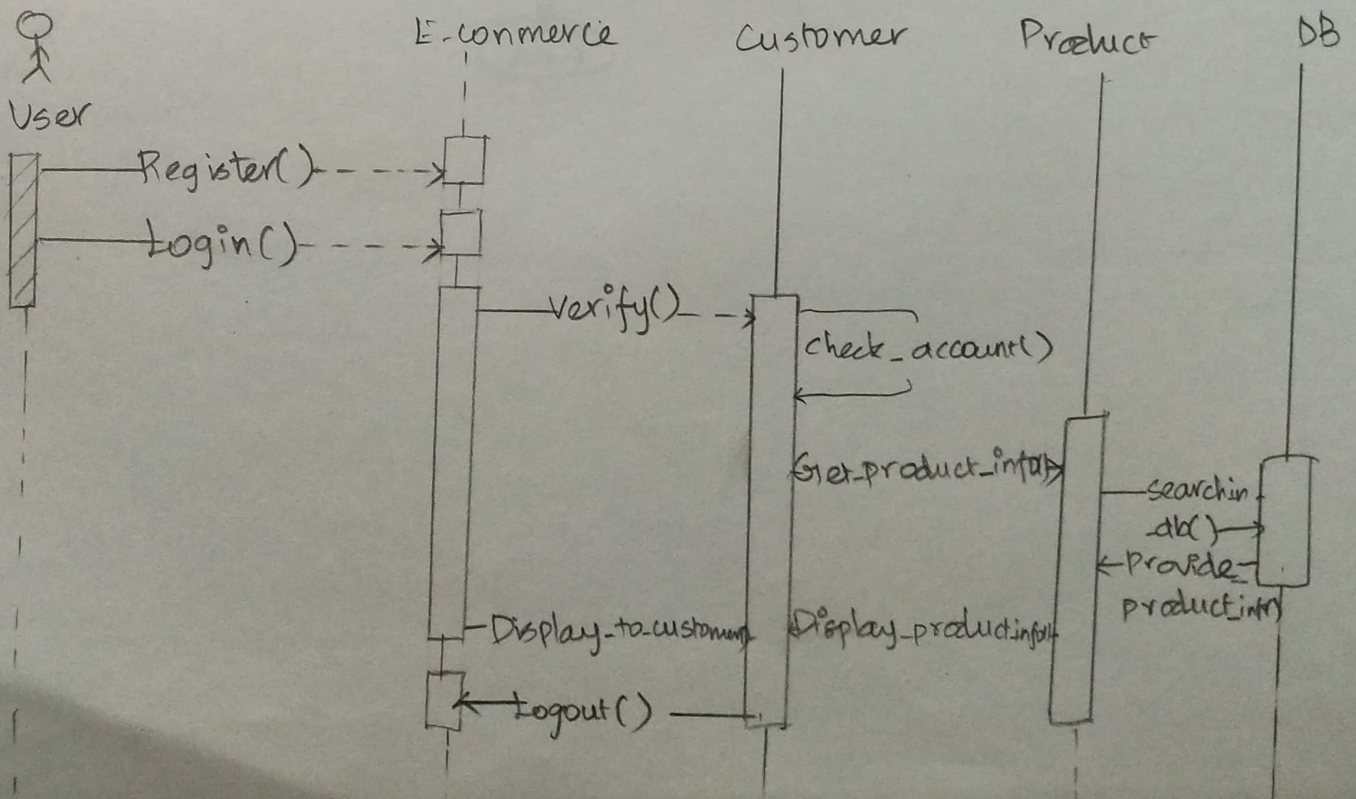 E-conmerce
Customer
Product
DB
User
Register()
Login()
verify()
check_account()
Get_product_info()
searchin
_db()
Provide_
product_info()
Display_to_customer()
Display_product_info()
Logout()